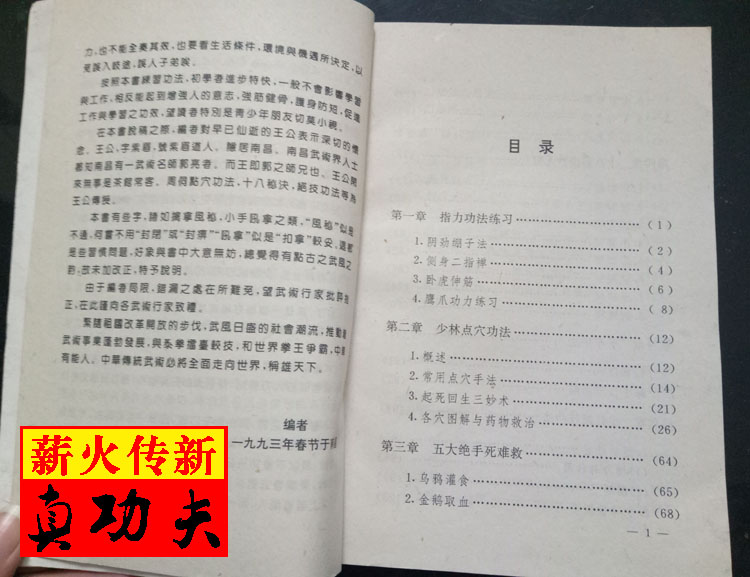 力,也不能全奏其效,也要看生活條件,環境與機遇所決定,以
免誤入歧途,誤人子弟唉。
按照本書練習功法,初學者進步特快,一般不會影響學習
與工作,相反能起到增強人的意志,強筋健骨,護身防短,促進
工作與學習之功效,望讀者特別是青少年朋友切莫小視。
在本書脫稿之際,編者對早已仙逝的王公表示深切的懷
念。王公,字紫眉,號紫眉道人、贈居南昌。南昌武術界人士
著知南昌有一武術名師郭亮者。而王即郭之師兄也。王公閑
來無事是茶館常客。周荷點穴功法,十八秘決,絕技功法等為
王公傳授。
本書有些字,諸如擒拿風秘,小手風拿之類,“風秘”似是
不通,何嘗不用“封閉”或“封癀”“風拿”似是“扣拿”較妥,這都
是些習慣問題,好象與書中大意無妨,總覺得有點古之武風之
,故未加改正,特予說明。
由于編者局限,錯漏之處在所難免,望武術行家批評指
正,在此僅向各武術行家致禮。
緊隨祖國改革開放的步伐,武風日盛的社會潮流,推動著
武術事業蓬勃發展,與泰學擂臺較技,和世界拳王爭霸,中華
有能人。中華傳統武術必將全面走向世界,稱雄天下。
编者
一九九三年春节于
目录
第一章 指力功法练习……(1)
1.阴劲绷子法……(2)
2.侧身二指禅……(4)
3.卧虎伸筋……(6)
4.鹰爪功力练习……(8)
第二章 少林点穴功法……(12)
1.概述……(12)
2.常用点穴手法……(14)
3.起死回生三妙术……(21)
4.各穴图解与药物救治……(26)
第三章 五大绝手死难救……(64)
1.乌鸦灌食……(65)
2.金鹅取血……(68)
— 1 —
薪火传新
真功夫